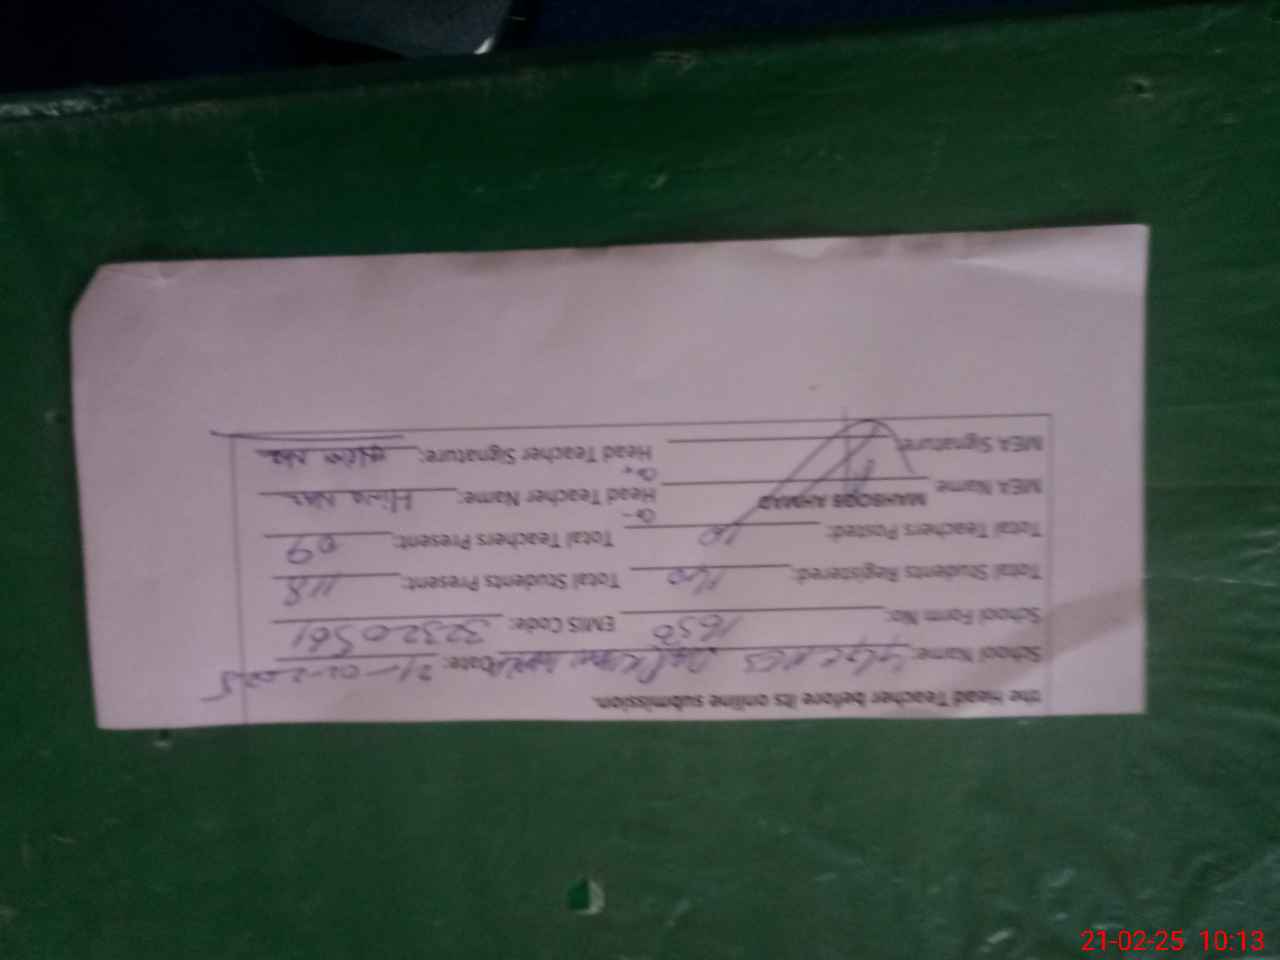 the Head Teacher before its online submission.
School Name: Date: 21-02-2025
School Form No: 1650 EMIS Code: 32320561
Total Students Registered: 140 Total Students Present: 118
Total Teachers Posted: 10 Total Teachers Present: 09
MEA Name MAHBOOB AHMAD Head Teacher Name: Hina Naz
MEA Signature: Head Teacher Signature: Hina Naz
21-02-25 10:13